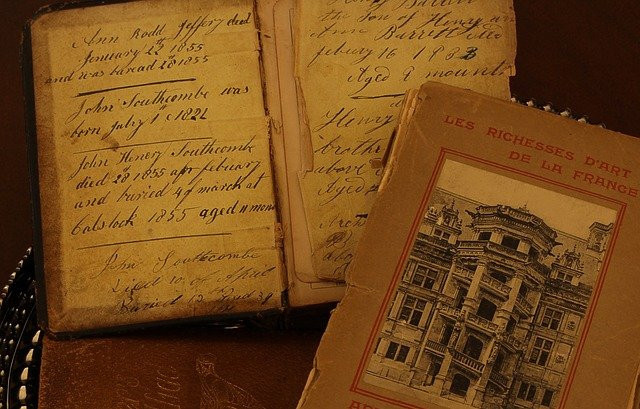 Ann Rodd Jeffery died
January 22th 1855
and was buried 28 1855
John Southcombe was
born July 1st 1822
John Henery Southcombe
died 28 1855 of february
and buried 4th march at
Calstock 1855 aged 11 mon
John Southcombe
Died 10 of
Buried
Henry Barrett
the son of Henry an
Ann Barrett
febury 16 1883
Aged 9 mounth
Henry
brothe
above
Aged
LES RICHESSES D'ART
DE LA FRANCE